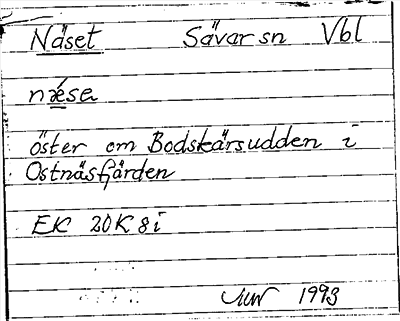 Näset Sävar sn Vbl
næ´se
öster om Bodskärsudden i
Ostnäsfjärden
EK 20K 8i
1993